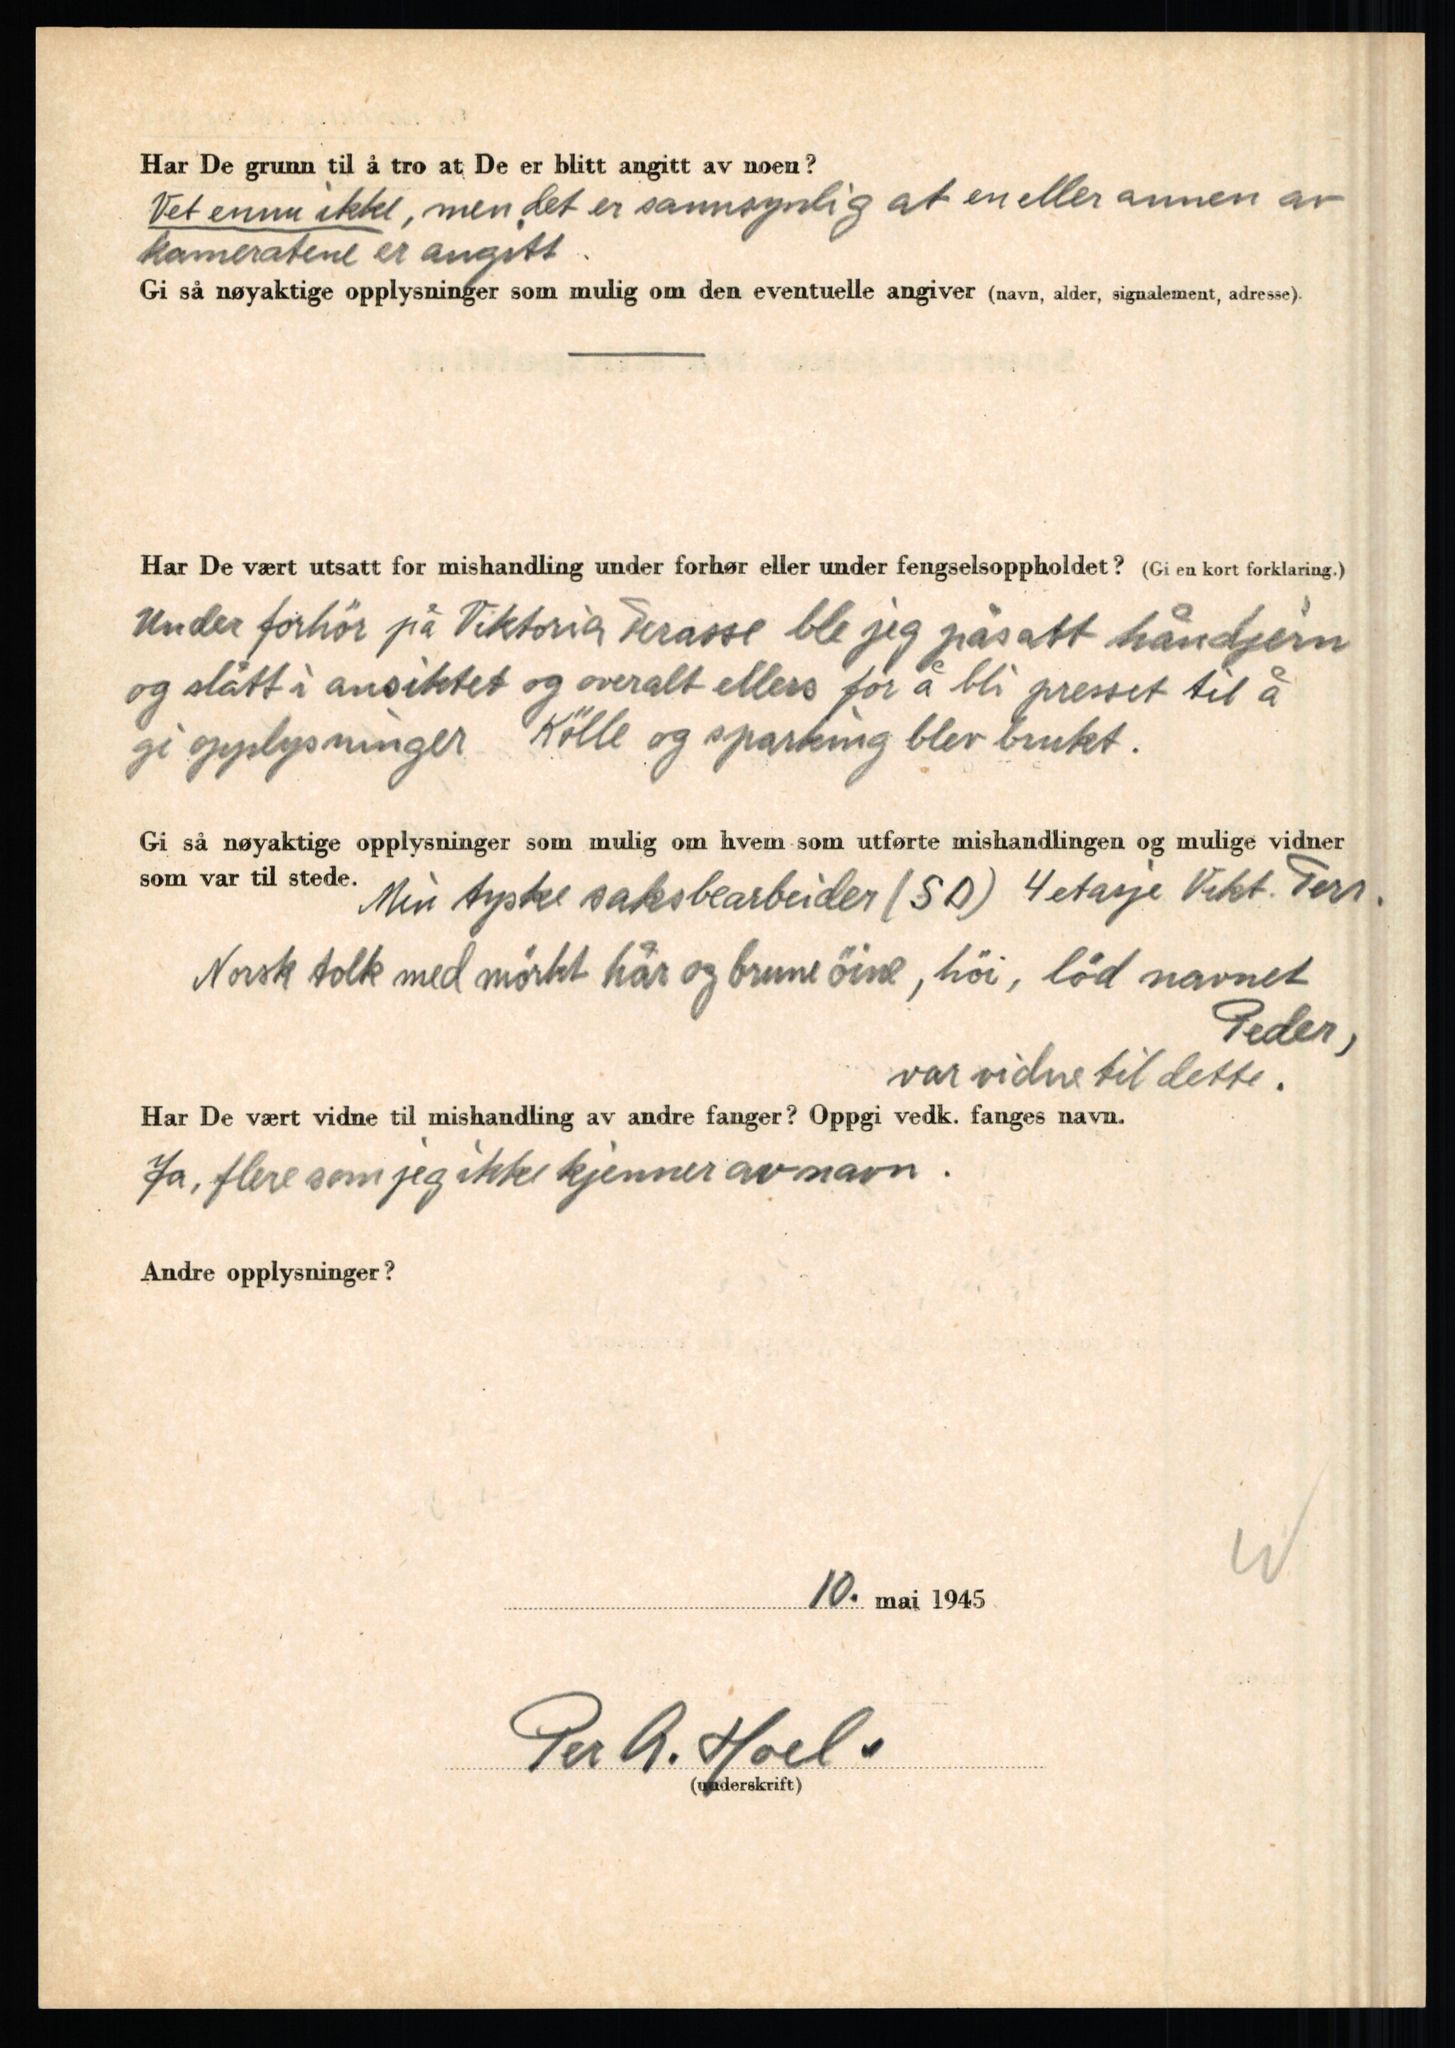 Har De grunn til å tro at De er blitt angitt av noen?
Vet ennu ikke, men det er sannsynlig at en eller annen av
kameratene er angitt.
Gi så nøyaktige opplysninger som mulig om den eventuelle angiver (navn, alder, signalement, adresse).
Har De vært utsatt for mishandling under forhør eller under fengselsoppholdet? (Gi en kort forklaring.)
Under forhör på Viktoria Terasse ble jeg påsatt håndjern
og slått i ansiktet og overalt ellers for å bli presset til å
gi opplysninger Kölle og sparking blev brukt.
Gi så nøyaktige opplysninger som mulig om hvem som utførte mishandlingen og mulige vidner
som var til stede. Min tyske saksbearbeider (SD) 4 etasje Vikt. Terr.
Norsk tolk med mörkt hår og brune öine, höi, löd navnet
Peder,
var vidne til dette.
Har De vært vidne til mishandling av andre fanger? Oppgi vedk. fanges navn.
Ja, flere som jeg ikke kjenner av navn.
Andre opplysninger?
10. mai 1945
Per A. Hoel.
(underskrift)